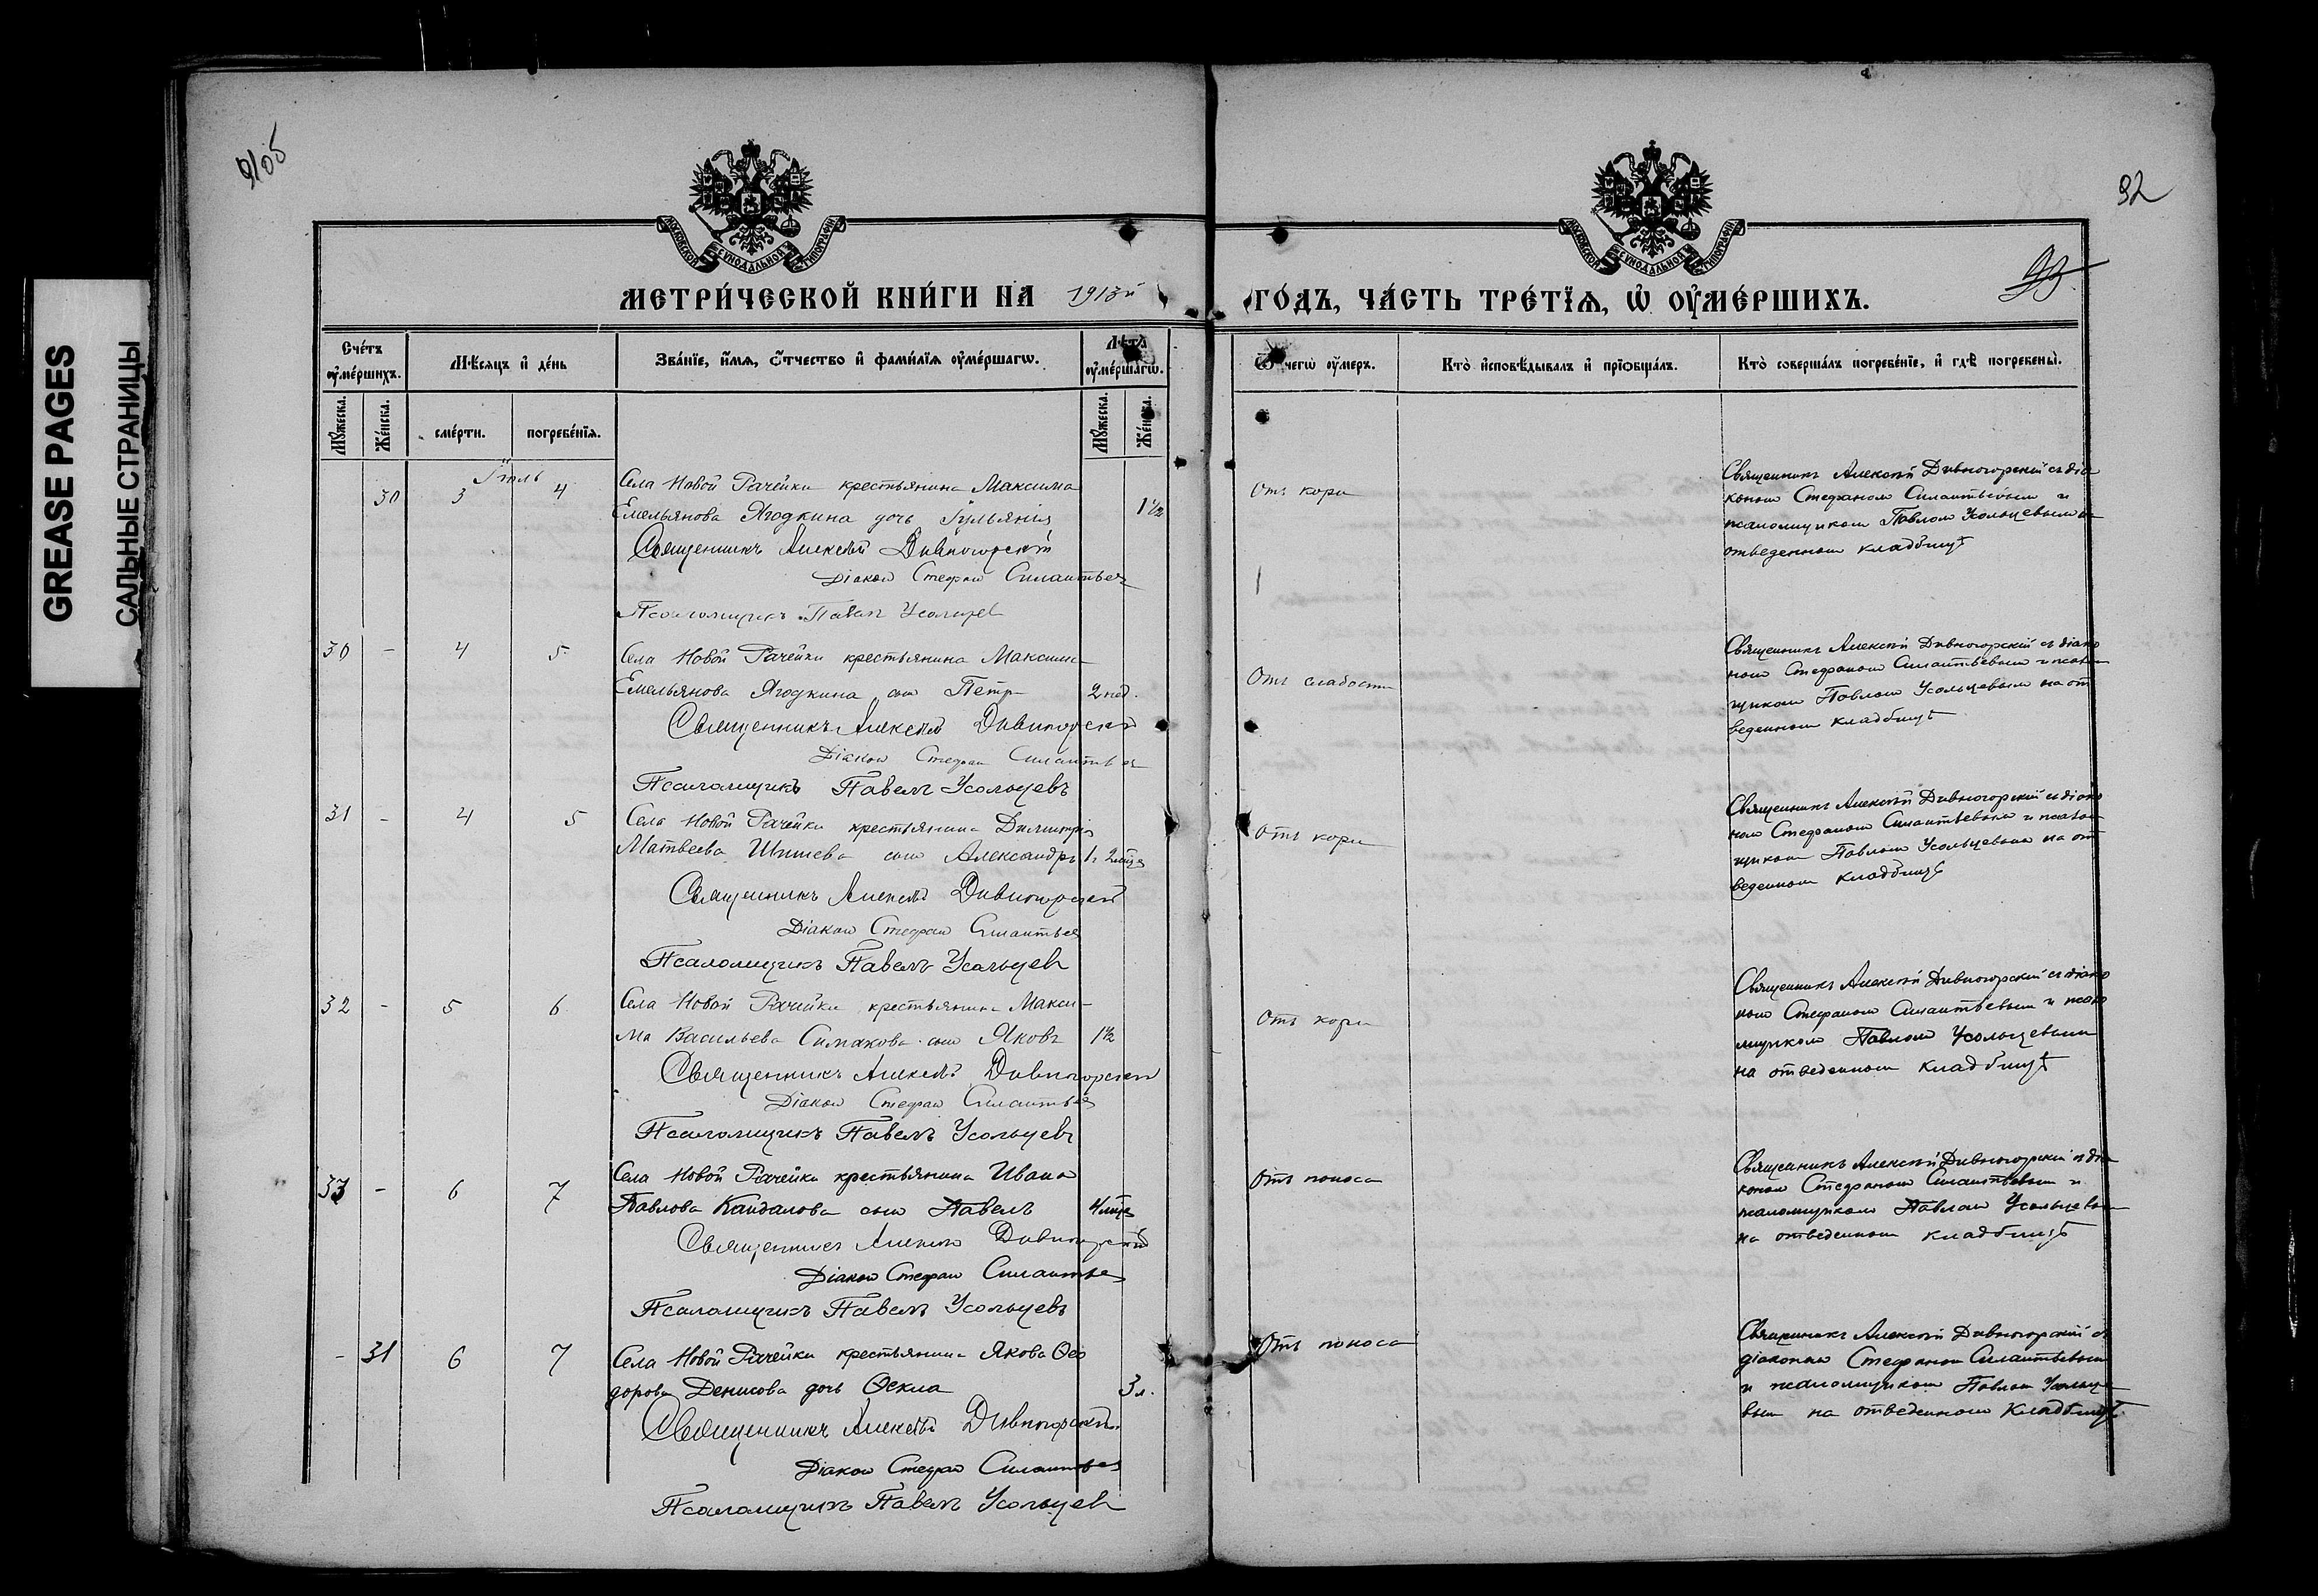 GREASE PAGES
САЛЬНЫЕ СТРАНИЦЫ
92
93
МОСКОВСКОЙ СѴНОДАЛЬНОЙ ТИПОГРАФІИ
МОСКОВСКОЙ СѴНОДАЛЬНОЙ ТИПОГРАФІИ
МЕТРИ́ЧЕСКОЙ КНИ́ГИ НА 1913й
ГО́ДЪ, ЧА́СТЬ ТРЕ́ТЇѦ, Ѡ҆ ОУ҆МЕ́РШИХЪ.
Сче́тъ оу҆ме́ршихъ.
Мѣ́сяцъ и҆ де́нь
Зва́нїе, и҆́мѧ, ѻ҆́тчество и҆ фами́лїѧ оу҆ме́ршагѡ.
Лѣ́та оу҆ме́ршагѡ.
Ѿ чегѡ̀ оу҆́меръ.
Кто̀ и҆сповѣ́дывалъ и҆ прїѡбща́лъ.
Кто̀ соверша́лъ погребе́нїе, и҆ гдѣ̀ погребены̀.
Мꙋ́жеска.
Же́нска.
сме́рти.
погребе́нїѧ.
Мꙋ́жеска.
Же́нска.
Іюль
30 3 4 Села Новой Рачейки крестьянина Максима
Емельянова Ягодкина дочь Іуліанія 1½
Священникъ Алексѣй Дивногорскій
Діакон Стефан Силантьев
Псаломщикъ Павел Усольцев
Отъ кори
Священникъ Алексѣй Дивногорскій съ діа
коном Стефаном Силантьевым и
псаломщиком Павлом Усольцевым на
отведенном кладбищѣ
30 - 4 5 Села Новой Рачейки крестьянина Максима
Емельянова Ягодкина сын Петр 2 нед.
Священникъ Алексѣй Дивногорскій
Діакон Стефан Силантьев
Псаломщикъ Павелъ Усольцевъ
Отъ слабости
Священникъ Алексѣй Дивногорскій съ діако
ном Стефаном Силантьевым и псалом
щиком Павлом Усольцевым на от
веденном кладбищѣ
31 - 4 5 Села Новой Рачейки крестьянина Димитрія
Матвеева Шишева сын Александръ
Священникъ Алексѣй Дивногорскій
Діакон Стефан Силантьев
Псаломщикъ Павелъ Усольцев
Отъ кори
Священникъ Алексѣй Дивногорскій съ діако
ном Стефаном Силантьевым и псалом
щиком Павлом Усольцевым на от
веденном кладбищѣ
32 - 5 6 Села Новой Рачейки крестьянина Макси-
ма Васильева Симакова сын Яковъ 1½
Священникъ Алексѣй Дивногорскій
Діакон Стефан Силантьев
Псаломщикъ Павелъ Усольцевъ
Отъ кори
Священникъ Алексѣй Дивногорскій съ діако
ном Стефаном Силантьевым и псало
мщиком Павлом Усольцевым
на отведенном кладбищѣ
33 - 6 7 Села Новой Рачейки крестьянина Ивана
Павлова Кандалова сын Павелъ 4 мѣс
Священникъ Алексѣй Дивногорскій
Діакон Стефан Силантьев
Псаломщикъ Павелъ Усольцевъ
Отъ поноса
Священникъ Алексѣй Дивногорскій съ діа
коном Стефаном Силантьевым и
псаломщиком Павлом Усольцевым
на отведенном кладбищѣ
- 31 6 7 Села Новой Рачейки крестьянина Якова Ѳео
дорова Денисова дочь Ѳекла 3 л.
Священникъ Алексѣй Дивногорскій
Діакон Стефан Силантьев
Псаломщикъ Павелъ Усольцев
Отъ поноса
Священникъ Алексѣй Дивногорскій съ
діаконом Стефаном Силантьевым
и псаломщиком Павлом Усольце
вым на отведенном кладбищѣ